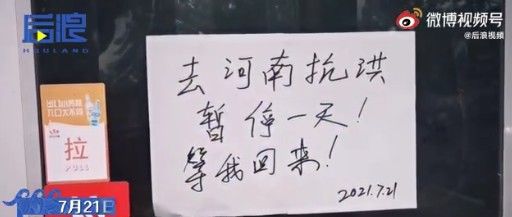 后浪
HOULANG
微博视频号
@后浪视频
去河南抗洪
暂停一天！
等我回来！
2021.7.21
拉
PULL
7月21日